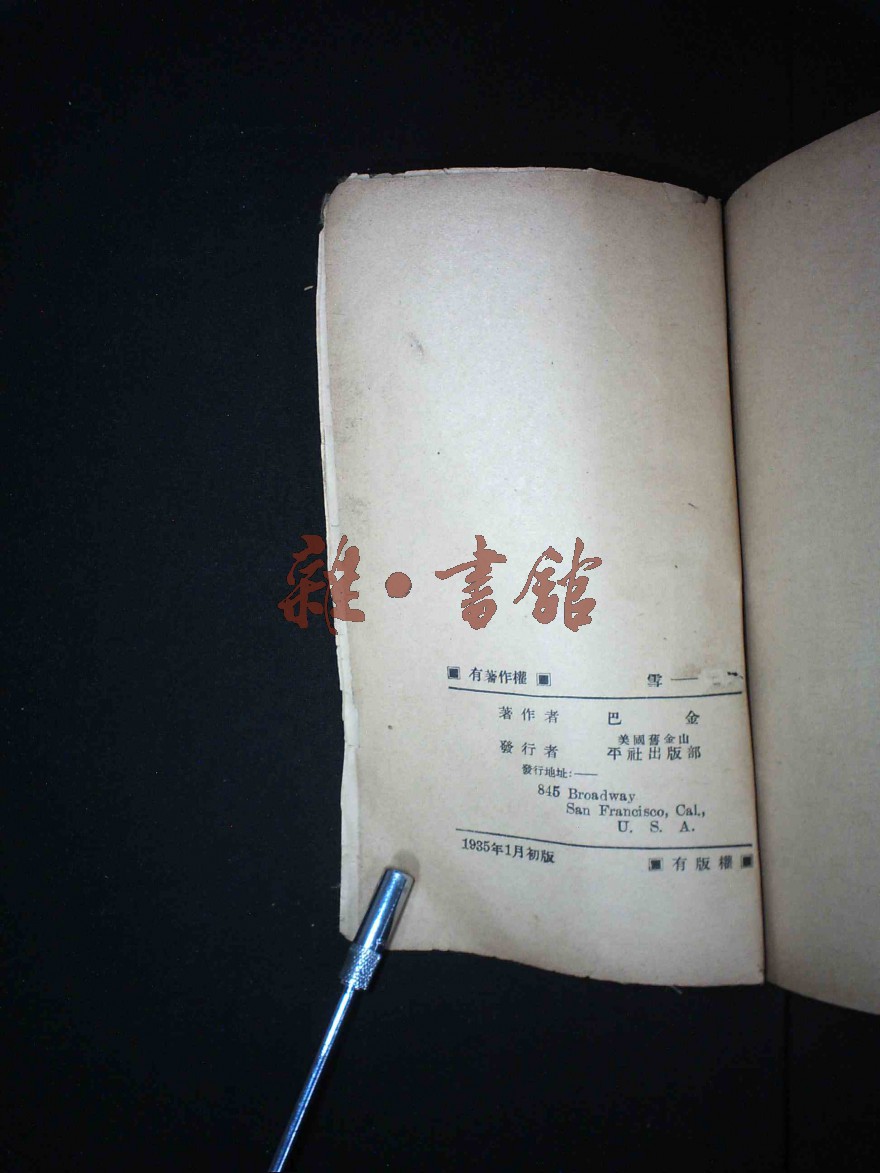 雜·書館
▣ 有著作權 ▣ 雪——
著作者 巴金
美國舊金山
發行者 平社出版部
發行地址:——
845 Broadway
San Francisco, Cal.,
U. S. A.
1935年1月初版
▣ 有版權 ▣